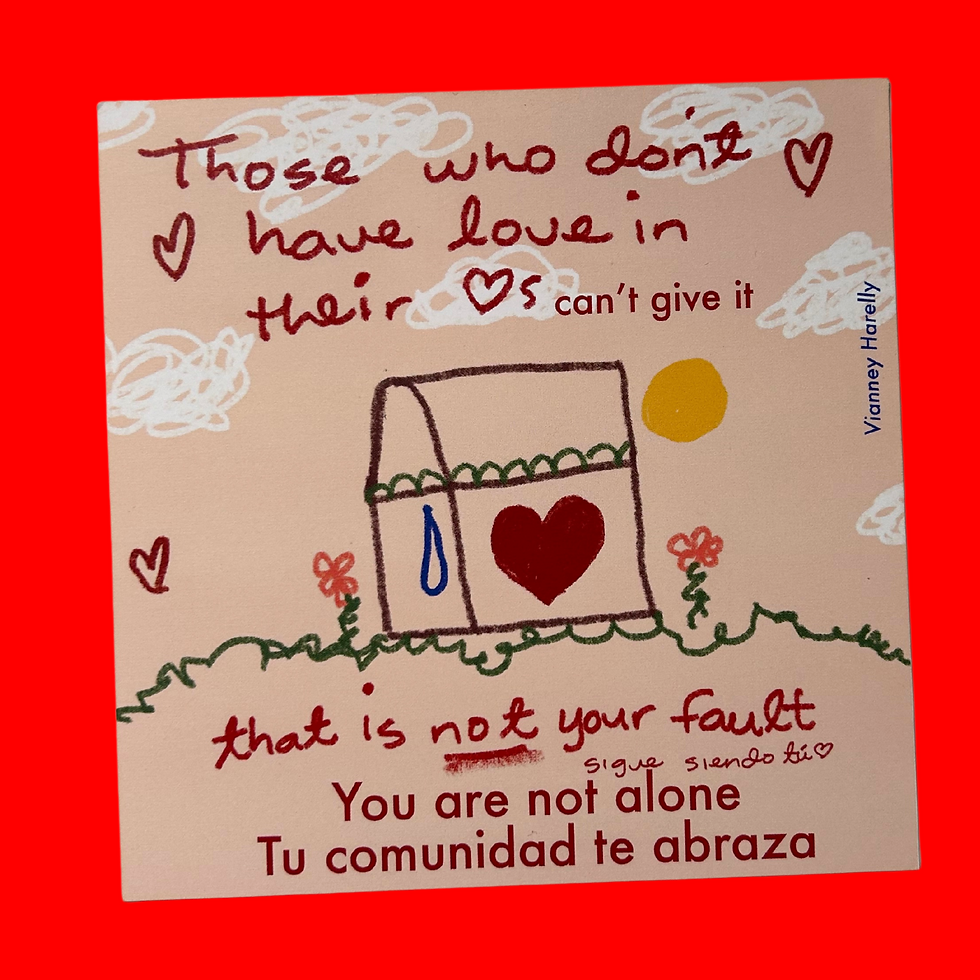 Those who don't
have love in
their ♡s can't give it
Vianney Harelly
that is not your fault
sigue siendo tú♡
You are not alone
Tu comunidad te abraza